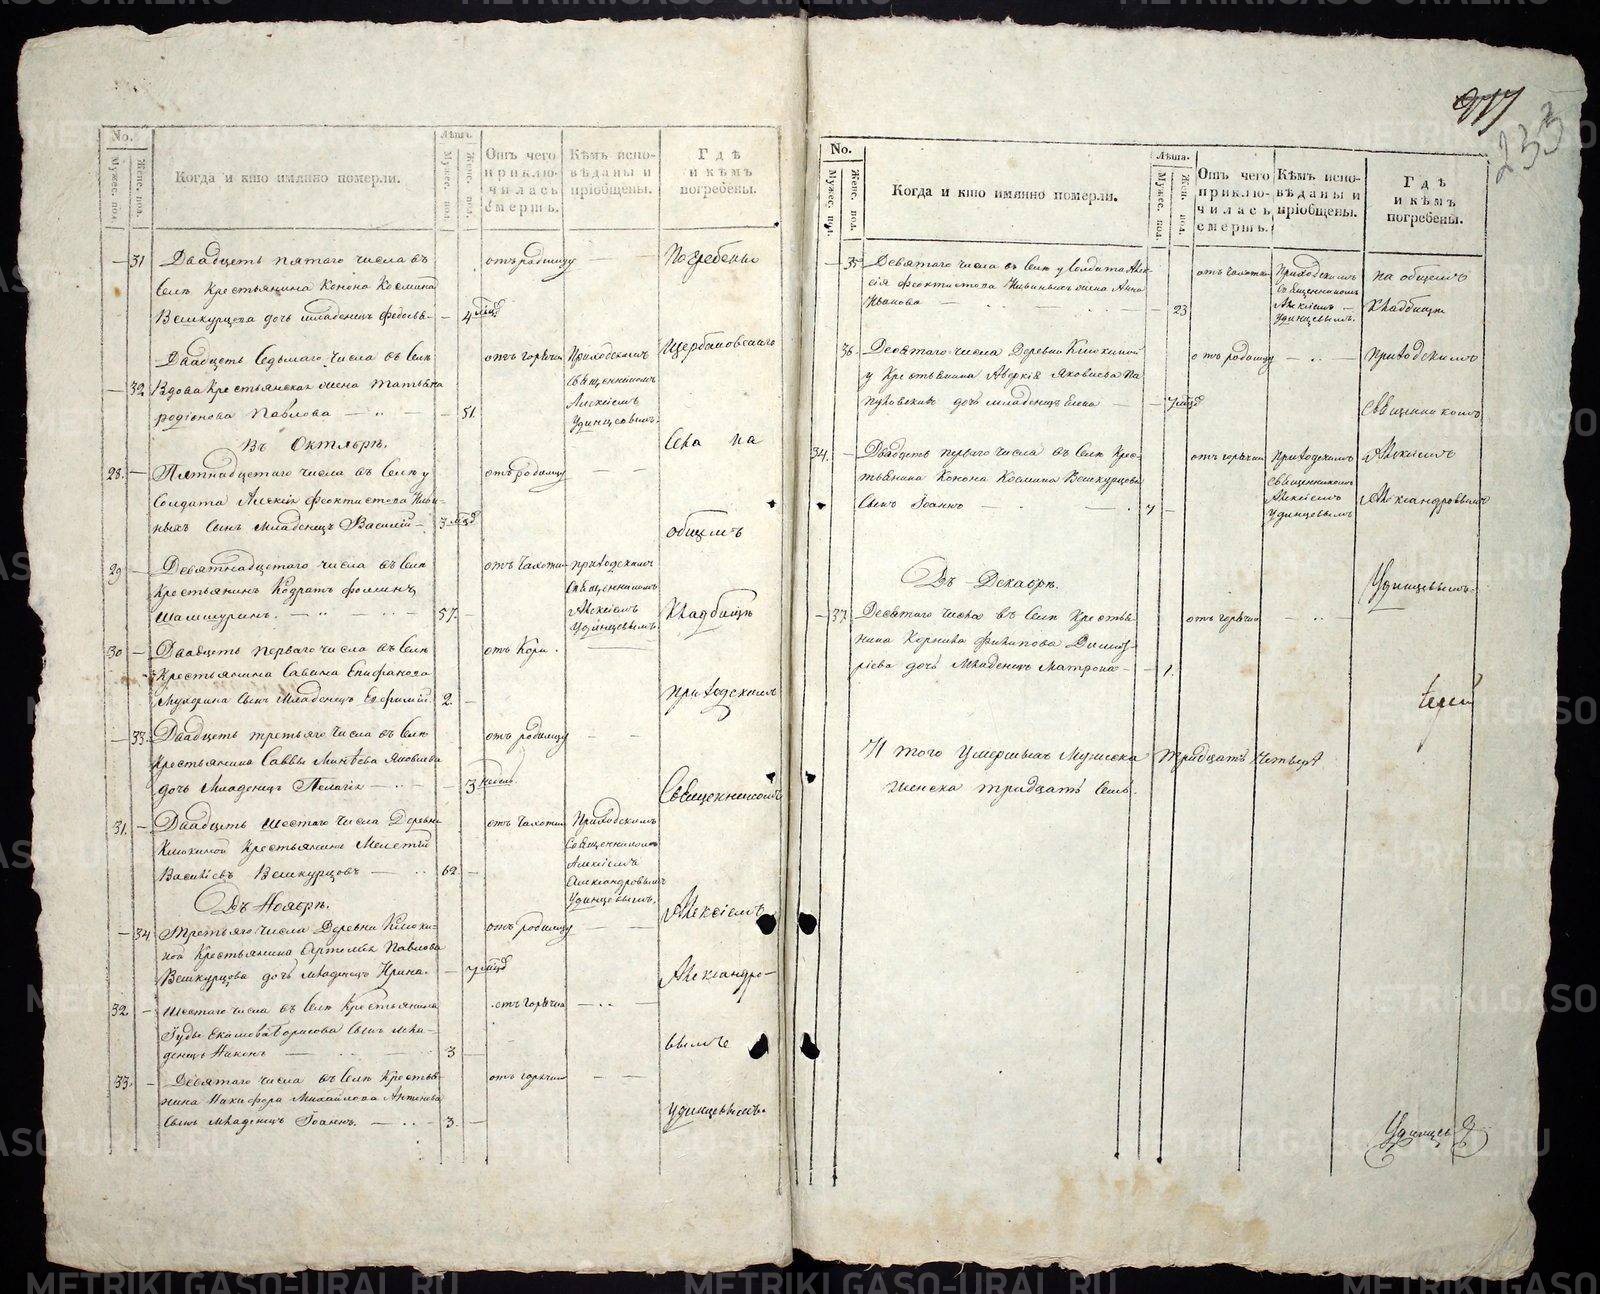 217
233
No.
Мужес. пол.
Женс. пол.
Когда и кто имянно померли.
Лѣта.
Мужес. пол.
Женс. пол.
Отъ чего приключилась смерть.
Кѣмъ исповѣданы и пріобщены.
Гдѣ и кѣмъ погребены.
— 31 Двадцеть пятаго числа въ отъ родимцу — Погребены
Селѣ Крестьянина Конона Космина
Вешкурцева дочь младенецъ Федосья — 4 мѣсц
Двадцеть седьмаго числа въ Селѣ отъ горячки Приходскимъ Щербаковскаго
— 32 Вдова Крестьянская жена Татьяна Священникомъ
родіонова Павлова — — 51. Алексіемъ
Удинцовымъ.
Въ Октябрѣ. Села на
28. — Пятнадцетаго числа въ Селѣ у отъ родимцу — —
Солдата Алексія Феоктистова
ныхъ сынъ Младенецъ Василій — 3 мѣсц
общемъ
29 — Девятнадцетаго числа въ Селѣ отъ Чахотки приходскимъ
Крестьянинъ Кодратъ Фоминъ Священникомъ
Шамшуринъ. — 57. — Алексіемъ Кладбищѣ
Удинцевымъ
30 — Двадцеть перваго числа въ Селѣ отъ Кори.
Крестьянина Савина Епифанова
сынъ Младенецъ Евфимій. 2 — приходскимъ
— 33. Двадцеть третьяго числа въ Селѣ отъ родимцу — —
Крестьянина Саввы Яковлева
дочь Младенецъ Пелагія — — 3 недел. Священникомъ
31. — Двадцеть шестаго числа Деревни отъ Чахотки Приходскимъ
Клюкиной Крестьянинъ Мелетій Священникомъ
Василіевъ Вешкурцовъ — 62. — Алексіемъ
Александровымъ
Въ Ноябрѣ. Удинцевымъ.
Алексіемъ
— 34 Третьяго числа Деревни Клюки- отъ родимцу — —
ной Крестьянина Артемія Павлова
Вешкурцова дочь младенецъ Ирина. — 7 мѣсц Александро-
32. — Шестаго числа въ Селѣ Крестьянина отъ горячки — —
сынъ мла-
денецъ Никонъ — 3 — вымъ
33. — Девятаго числа въ Селѣ Крестья- отъ горячки — —
нина Никифора Михайлова Антинева
сынъ младенецъ Іоаннъ. — 3. — Удинцевымъ.
No.
Мужес. пол.
Женс. пол.
Когда и кто имянно померли.
Лѣта.
Мужес. пол.
Женс. пол.
Отъ чего приключилась смерть.
Кѣмъ исповѣданы и пріобщены.
Гдѣ и кѣмъ погребены.
— 35 Девятаго числа въ Селѣ у Солдата Алек- отъ чахотки Приходскимъ на общемъ
сія Феоктистова жена Анна Священникомъ
Иванова — — 23 Алексіемъ Кладбищѣ
Удинцевымъ.
36. Десятаго числа Деревни Клюкиной отъ родимцу — приходскимъ
у Крестьянина Аверкія Яковлева Па
дочь младенецъ Елена — — 7 мѣсц Священникомъ
34. — Двадцеть перваго числа въ Селѣ Крес- отъ горячки приходскимъ Алексіемъ
тьянина Конона Космина Вешкурцова Священникомъ
сынъ Іоаннъ — 7 — Алексіемъ Александровымъ
Удинцевымъ
Въ Декабрѣ. Удинцевымъ.
— 37. Десятаго числа въ Селѣ Крестья- отъ горячки — —
нина Корнила Филипова
ріева дочь Младенецъ Матрона — — 1.
Іерей
И того Умершыхъ Мужеска тридцать четыре
Женска тридцать семь.
Удинцевъ
METRIKI.GASO-URAL.RU